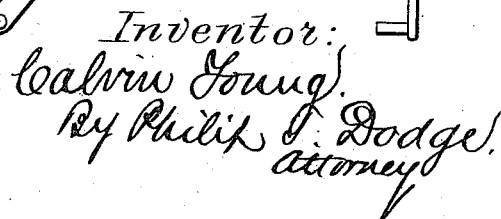 Inventor:
Calvin Young.
By Philip T. Dodge.
Attorney